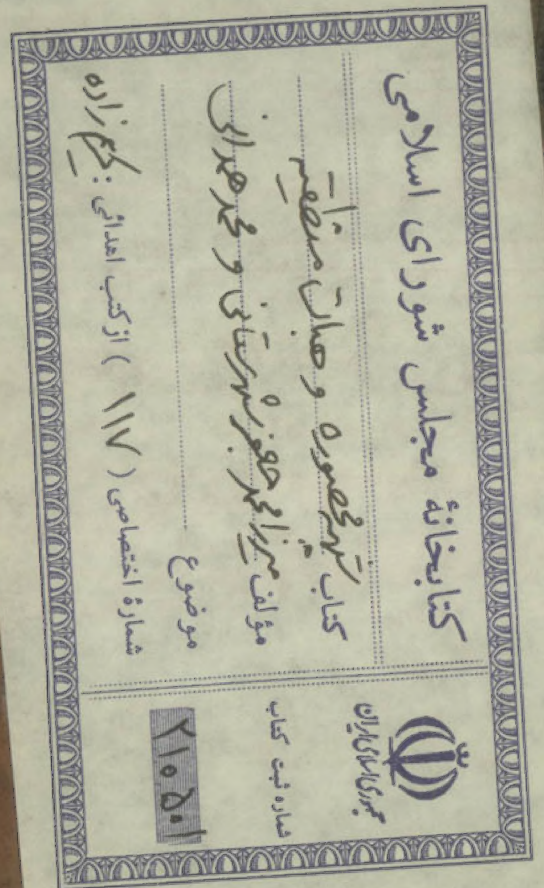 کتابخانهٔ مجلس شورای اسلامی
کتاب شبهه محصوره و هبات منقطیة
مؤلف میرزا محمد جعفر شهرستانی و محمد همدانی
موضوع
شمارهٔ اختصاصی ( ۱۱۷ ) از کتب اهدائی : کریم زاده
جمهوری اسلامی ایران
شماره ثبت کتاب
۲۱۰۵۰۱